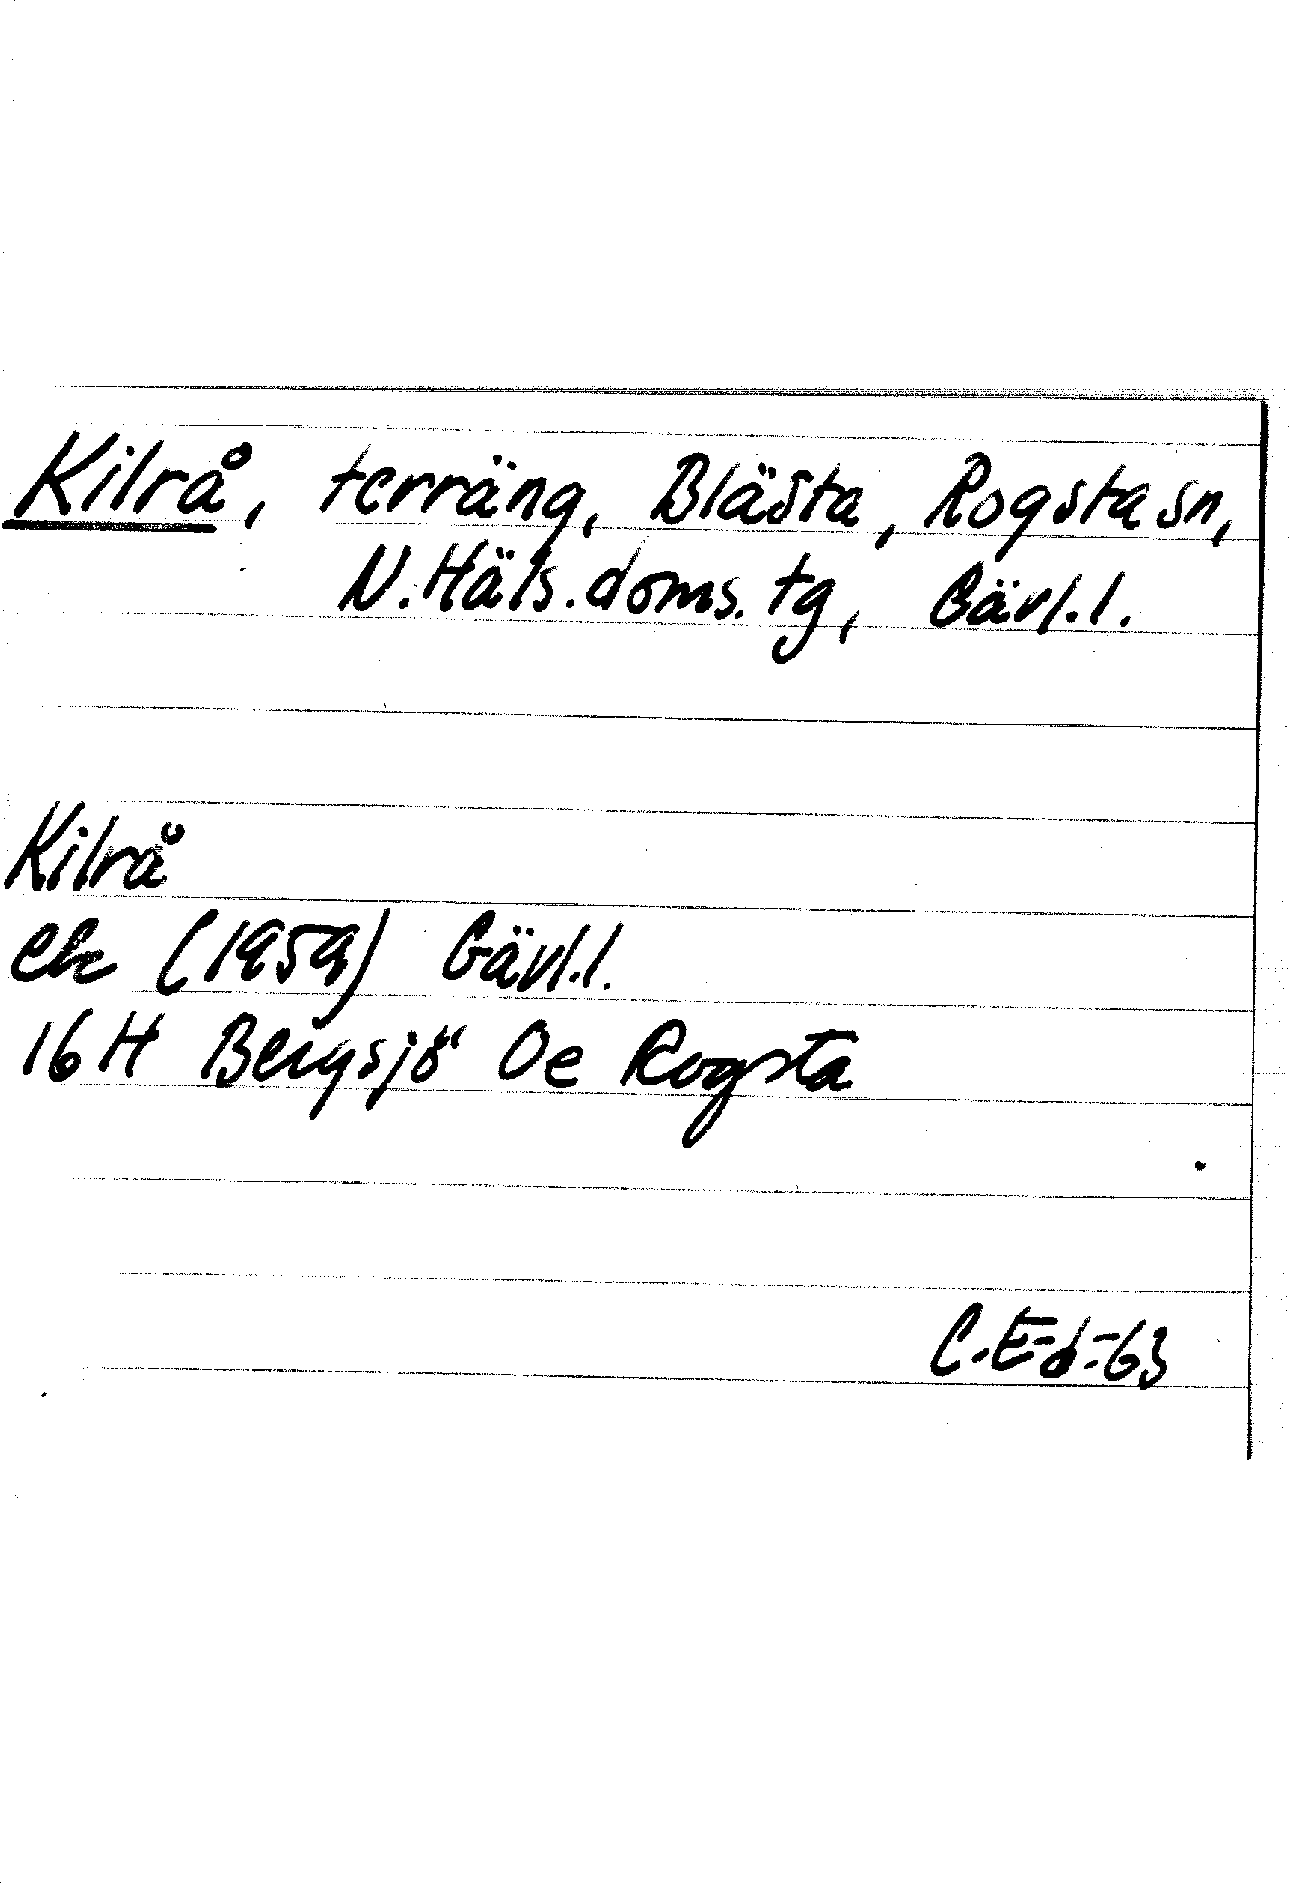 Kilrå, terräng, Blästa, Rogsta sn,
N. Häls. doms. tg, Gävl. l.
Kilrå
ek (1959) Gävl. l.
16 H Bergsjö Oe Rogsta
C.E-d-63